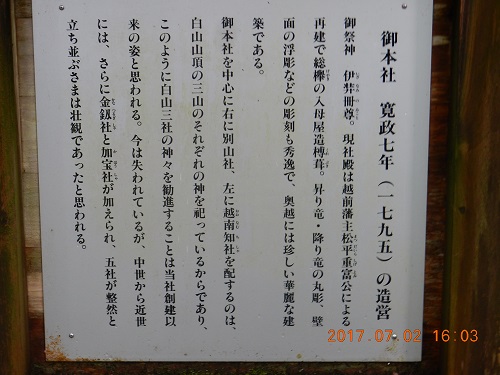 御本社　寛政七年（一七九五）の造営
御祭神　伊弉冊尊。現社殿は越前藩主松平重富公による
再建で総欅の入母屋造榑葺。昇り竜・降り竜の丸彫、壁
面の浮彫などの彫刻も秀逸で、奥越には珍しい華麗な建
築である。
御本社を中心に右に別山社、左に越南知社を配するのは、
白山山頂の三山のそれぞれの神を祀っているからであり、
このように白山三社の神々を勧進することは当社創建以
来の姿と思われる。今は失われているが、中世から近世
には、さらに金釼社と加宝社が加えられ、五社が整然と
立ち並ぶさまは壮観であったと思われる。
2017.07.02 16:03